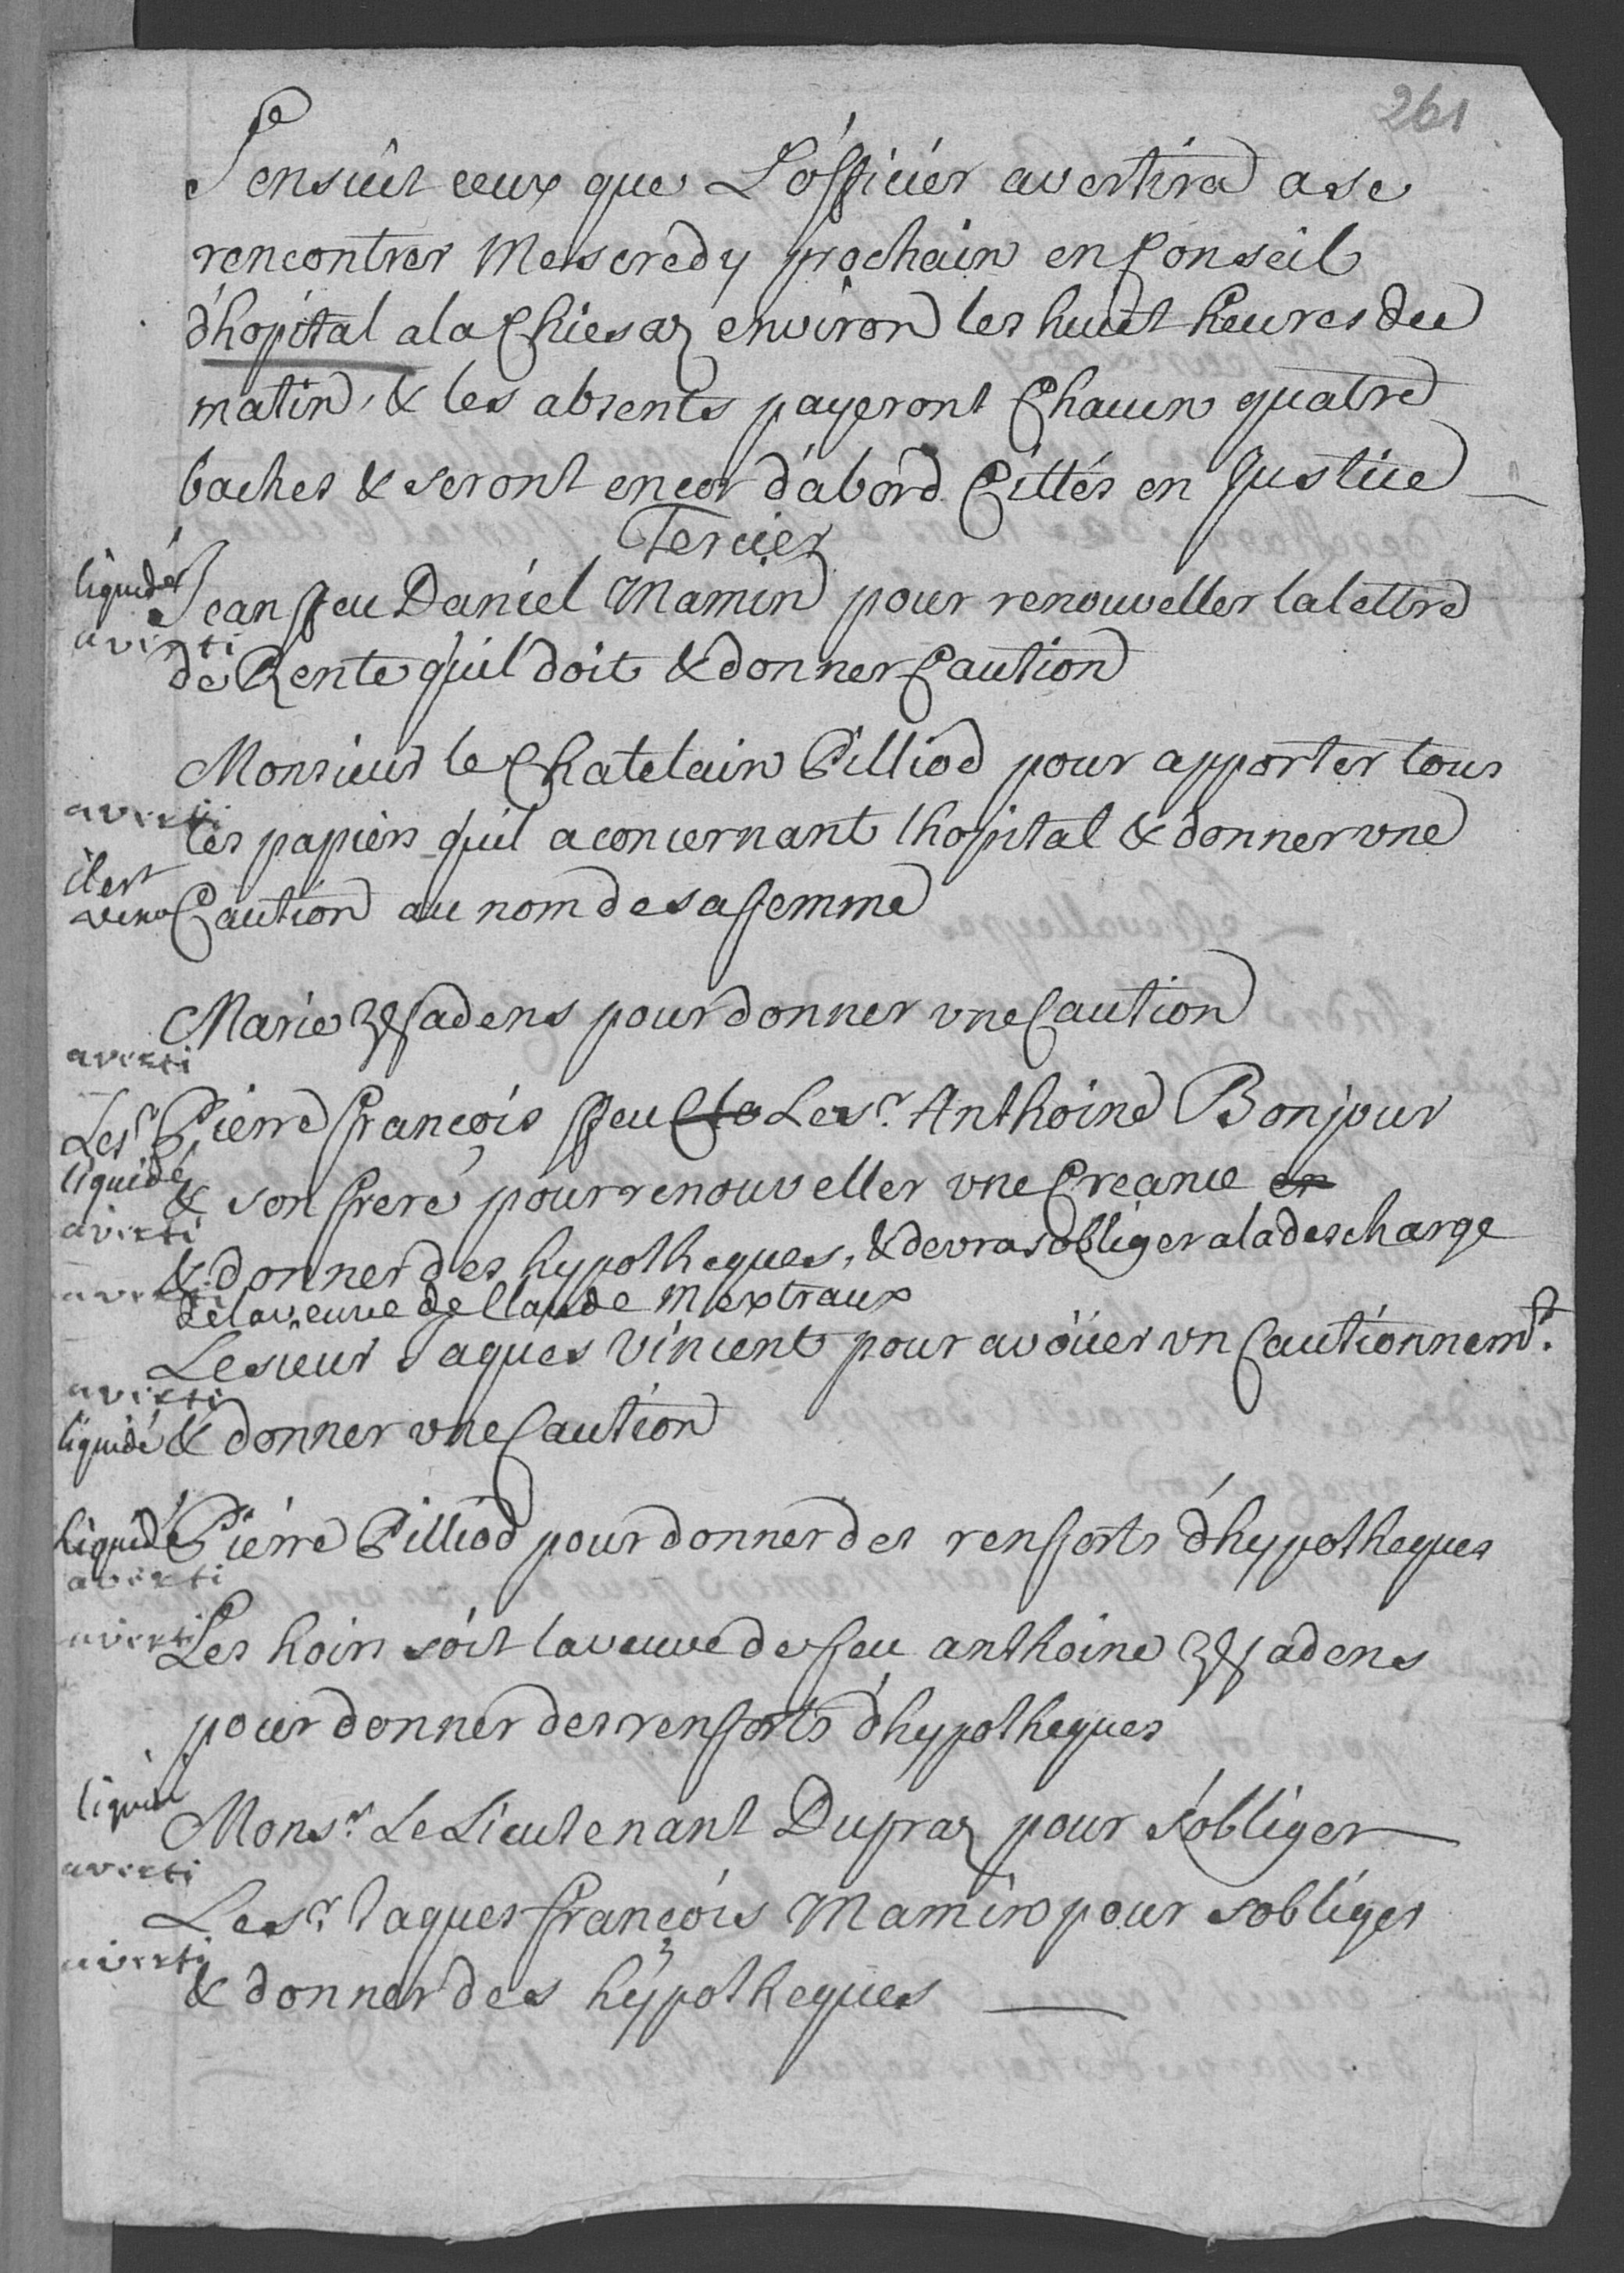 261
S'ensuit ceux que L'officier avertira a se
rencontrer Mescredy prochain en Conseil
d'hopital a la Chiesaz environ les huict heures du
matin, & les absents payeront Chacun quatre
baches & seront encor d'abord Cittés en Justice
Tercier
liquidé
Jean feu Daniel Mamin pour renouveller la lettre
averti
de Rente qu'il doit & donner Caution
Monsieur le Chatelain Pilliod pour apporter tous
averti
les papiers qu'il a concernant l'hopital & donner vne
il est
venu
Caution au nom de sa femme
Marie Dufadens pour donner vne Caution
averti
Le sr. Pierre François feu Le sr. Anthoine Bonjour
liquidé
& son frere pour renouveller vne Creance en
averti
& donner des hypotheques, & devra sobliger a la descharge
averti
de la veuve de Claude Mextraux
Le sieur Jaques Vincent pour avoüer vn Cautionnemt.
averti
liquidé
& donner vne Caution
liquidé
Pierre Pilliod pour donner des renforts d'hypotheques
averti
averti
Les hoirs soit la veuve de feu anthoine Dufadens
pour donner des renforts d'hypotheques
liquidé
Monsr. Le Lieutenant Dupraz pour s'obliger
averti
Le sr. Jaques François Mamin pour sobliger
averti
& donner des hypotheques